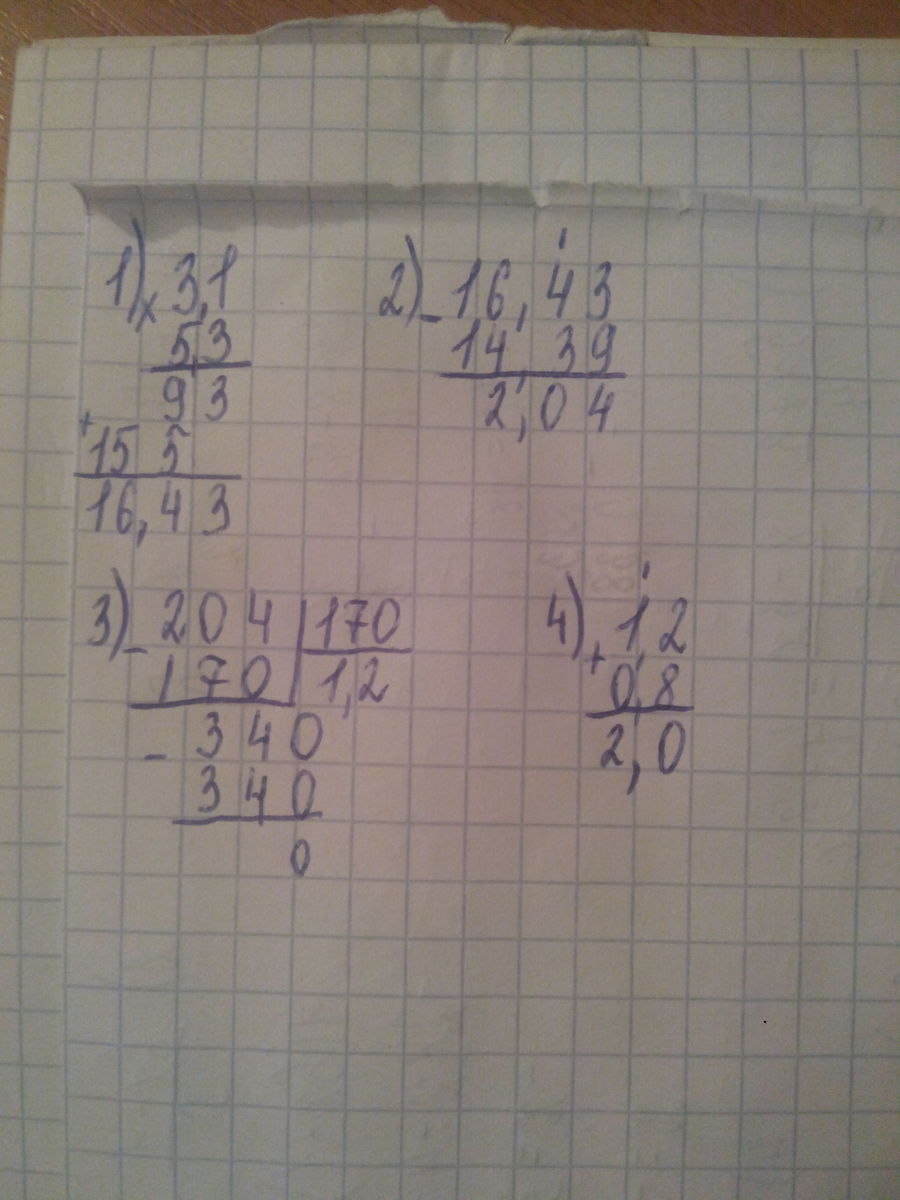 1) × 3,1
5,3
93
+
15 5
16,43
2) - 16,43
14 39
2,04
3) - 204 | 170
170 | 1,2
- 340
340
0
4) + 1,2
0,8
2,0